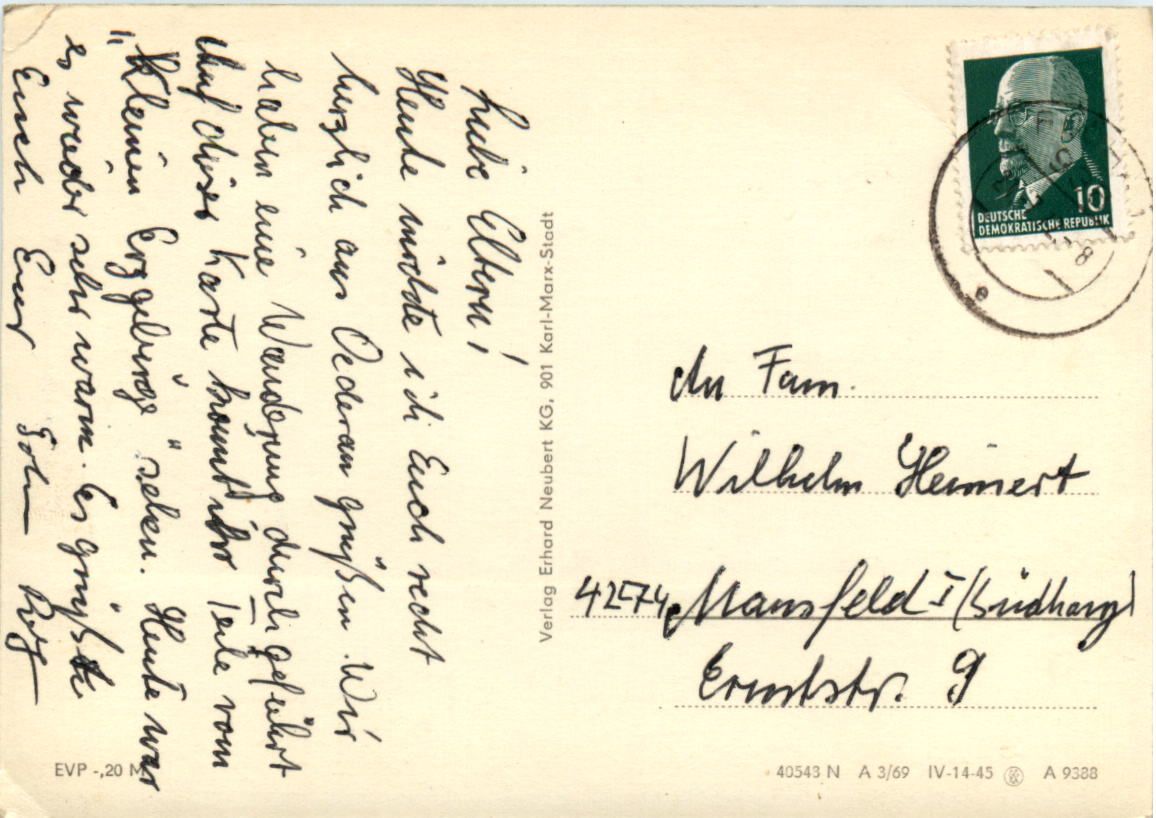 Liebe Eltern!
Heute möchte ich Euch recht
herzlich aus Oederan grüßen. Wir
haben eine Wanderung durchgeführt
Auf dieser Karte könnt ihr Teile vom
"Kleinen Erzgebirge" sehen. Heute war
es wieder sehr warm. Es grüßt
Euch Euer Sohn
Verlag Erhard Neubert KG, 901 Karl-Marx-Stadt
10
DEUTSCHE
DEMOKRATISCHE REPUBLIK
An Fam.
Wilhelm Heinert
4274 Mansfeld I (Südharz)
Ernststr. 9
EVP -,20 M
40543 N A 3/69 IV-14-45 A 9388